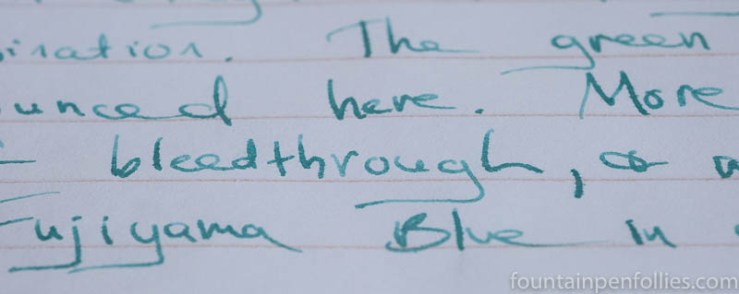 iration. The green
unced here. More
bleedthrough, or
Fujiyama Blue in
fountainpenfollies.com